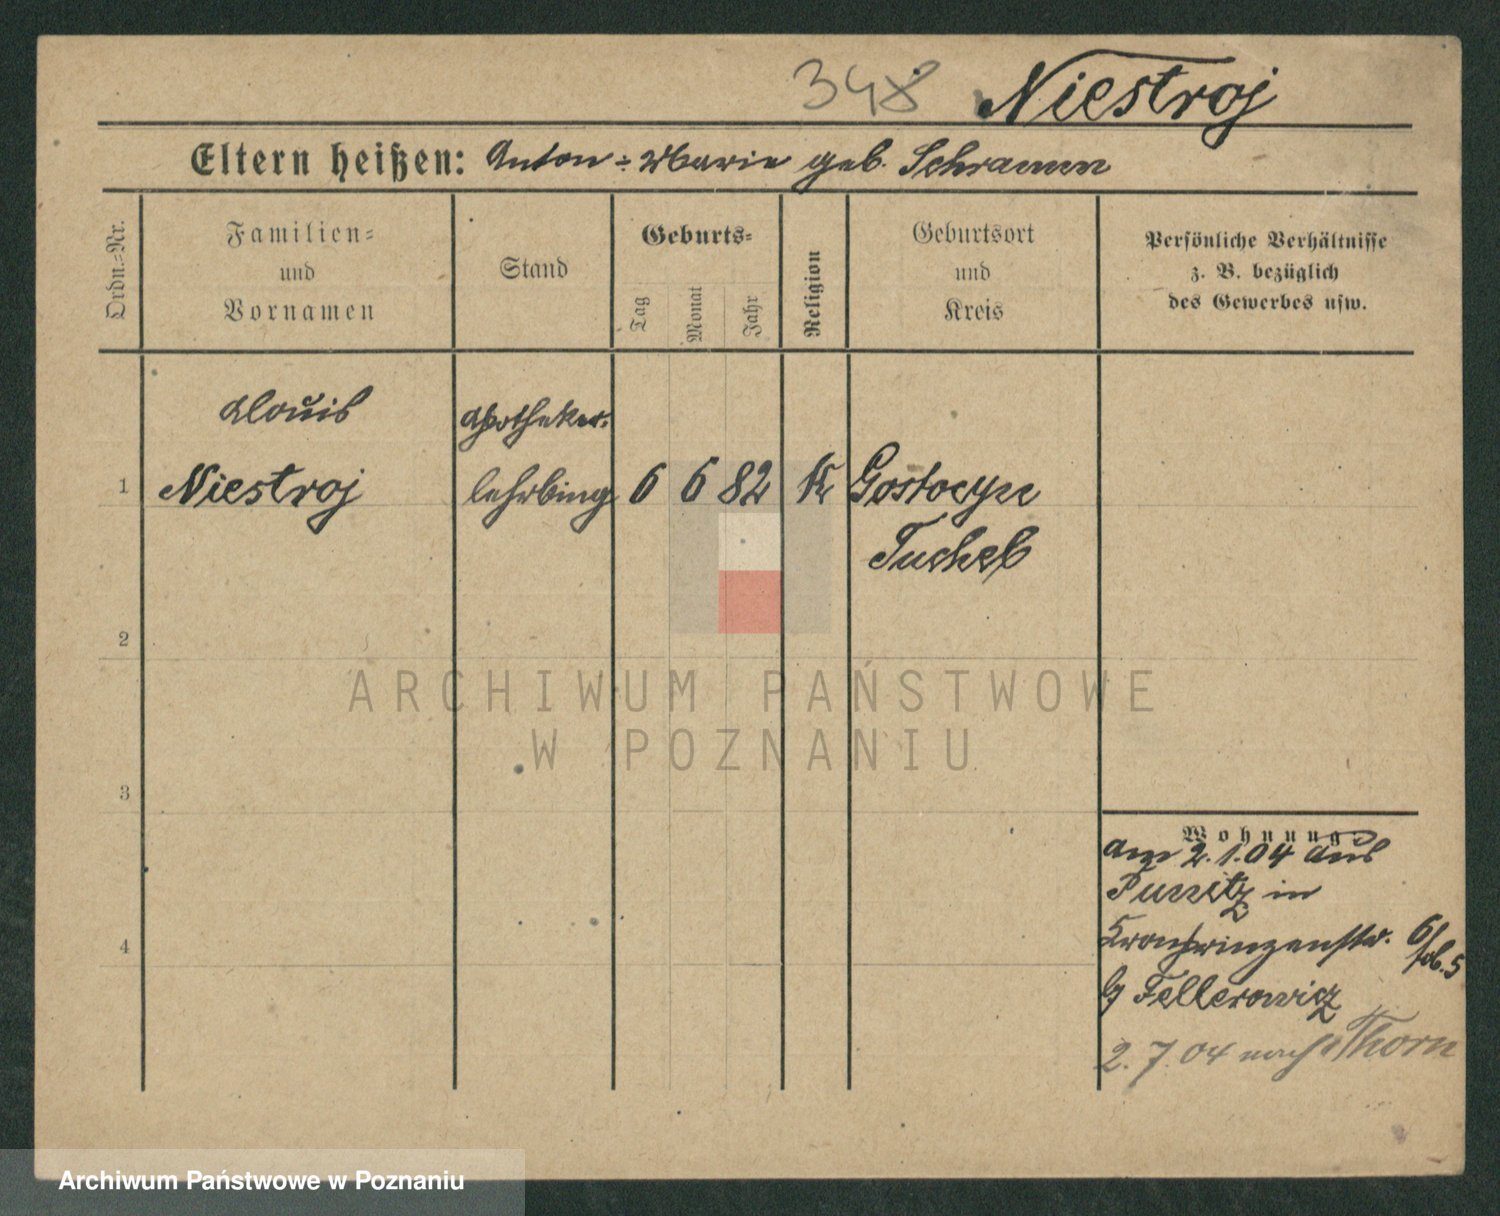 348 Niestroj
Eltern heißen: Anton - Marie geb. Schramm
Ordn.-Nr.
Familien-
und
Vornamen
Stand
Geburts-
Tag
Monat
Jahr
Religion
Geburtsort
und
Kreis
Persönliche Verhältnisse
z. B. bezüglich
des Gewerbes usw.
Alouis
Apotheker-
1 Niestroj lehrling 6 6 82 K Gostoczyn
Tuchel
2
ARCHIWUM PAŃSTWOWE
W POZNANIU
3
Wohnung
am 2.1.04 aus
Punitz in
Kronprinzenstr. 6/
b/ Fellerowicz
2.7.04 nach Thorn
4
Archiwum Państwowe w Poznaniu